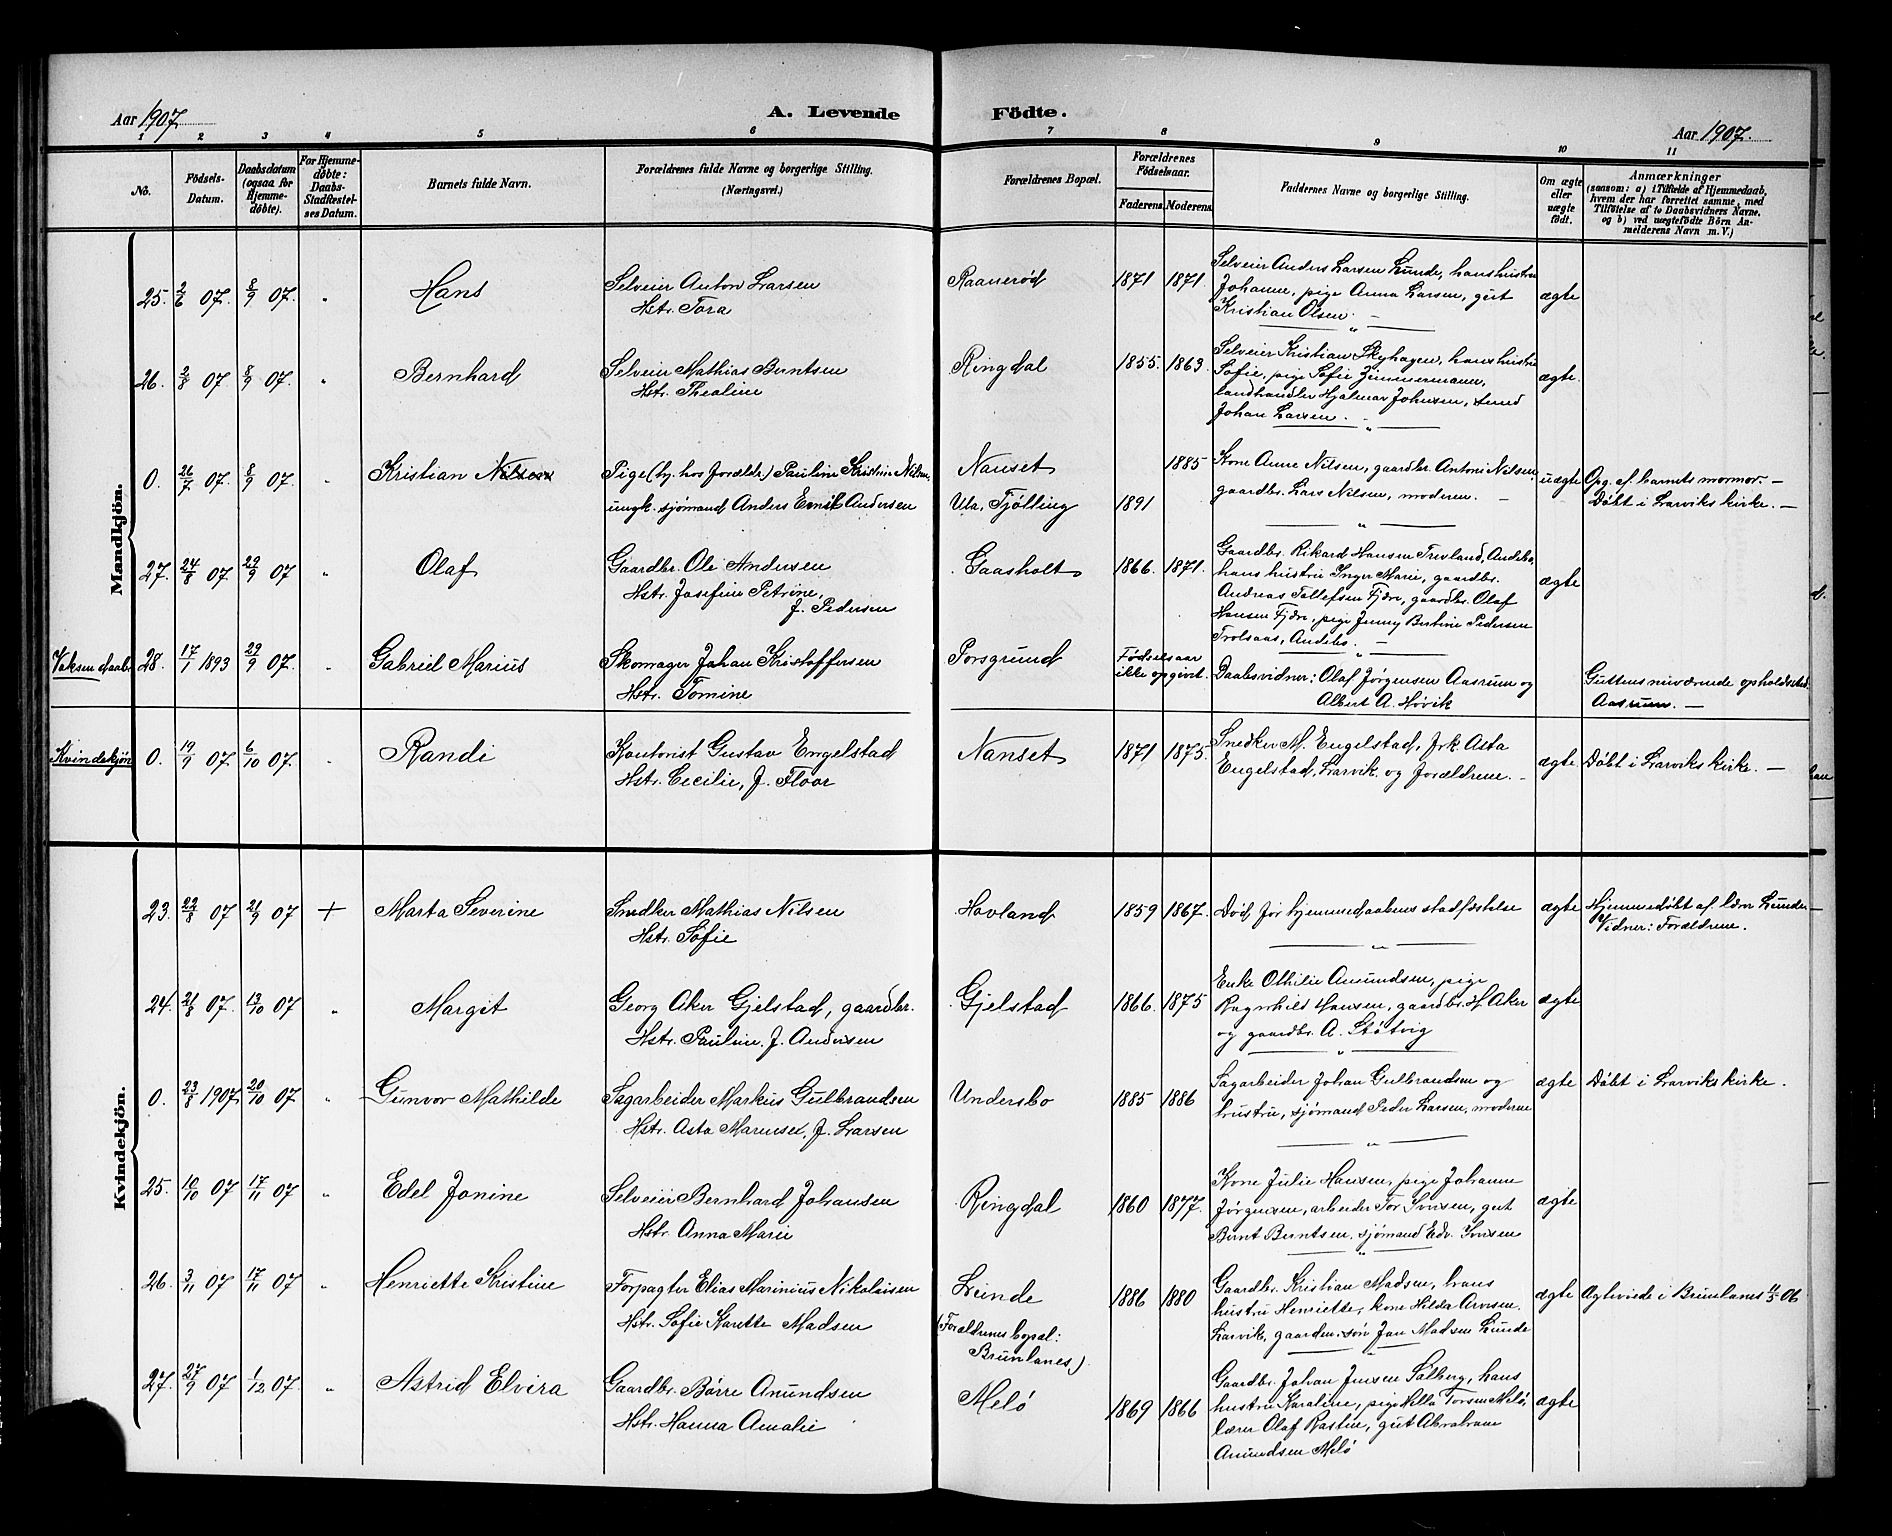 Aar 1907.
A. Levende Födte.
Aar 1907.
1 2 3 4 5 6 7 8 9 10 11
No.
Födsels-Datum.
Daabsdatum (ogsaa for Hjemmedøbte).
For Hjemmedøbte: Daabs-Stadfestelses Datum.
Barnets fulde Navn.
Forældrenes fulde Navne og borgerlige Stilling. (Næringsvei.)
Forældrenes Bopæl.
Forældrenes Födselsaar.
Faderens. Moderens.
Faddernes Navne og borgerlige Stilling.
Om ægte eller uægte födt.
Anmærkninger
(saasom: a) i Tilfælde af Hjemmedaab,
hvem der har forrettet samme, med
Tilföielse af to Daabsvidners Navne,
og b) ved uægtefödte Börn An-
melderens Navn m. V.)
Mandkjön.
25. 2/6 07. 8/9 07. " Hans
Selveier Anton Larsen
Hstr. Tora
Raanerød 1871 1871.
Selveier Anders Larsen Lunde, hans hustru
Johanne, pige Anna Larsen, gut
Kristian Olsen.
ægte
26. 2/8 07. 8/9 07. " Bernhard
Selveier Mathias Berntsen
Hstr. Thealine
Ringdal 1855. 1863.
Selveier Kristian Skyhagen, hans hustru
Sofie, pige Sofie Zimmermann,
landhandler Hjalmar Johnsen, smed
Johan Larsen.
ægte.
0. 26/7 07. 8/9 07. " Kristian Nilsen
Pige (hj. hos forældr.) Pauline Kristine Nilsen,
ungk. sjømand Anders Emil Andersen
Nanset 1885
Ula, Tjølling 1891
Kone Anne Nilsen, gaardbr. Anton Nilsen,
gaardbr. Lars Nilsen, moderen.
uægte
Opg. af barnets mormor. –
Døbt i Larviks kirke. –
27. 24/8 07. 22/9 07 " Olaf
Gaardbr. Ole Andersen
Hstr. Josefine Petrine,
f. Pedersen
Gaasholt 1866. 1871.
Gaardbr. Rikard Hansen Trevland, Andebu,
hans hustru Inger Marie, gaardbr.
Andreas Tollefsen Fjære, gaardbr. Olaf
Hansen Fjære, pige Jenny Bertine Pedersen
Trolsaas, Andebu.
ægte
Voksen daab.
28. 17/1 1893 22/9 07. " Gabriel Marius
Skomager Johan Kristoffersen
Hstr. Tomine
Porsgrund
Fødselsaar
ikke opgivet.
Daabsvidner: Olaf Jørgensen Aasrum og
Albert A. Høvik
Guttens nuværende opholdssted
Aasrum. –
Kvindekjön
0. 19/9 07 6/10 07. " Randi
Kontorist Gustav Engelstad
Hstr. Cecilie, f. Floor
Nanset 1871 1875.
Snedker M. Engelstad, frk Asta
Engelstad, Larvik. og forældrene. –
ægte. Døbt i Larviks kirke. –
Kvindekjön.
23. 22/8 07 21/9 07 + Marta Severine
Snedker Mathias Nilsen
Hstr. Sofie
Hovland 1859 1867.
Død før hjemmedaabens stadfæstelse
ægte
Hjemmedøbt af lærer Lunde. –
Vidner: Forældrene.
24. 21/8 07. 13/10 07 " Margit
Georg Aker Gjelstad, gaardbr.
Hstr. Pauline. f. Andersen
Gjelstad 1866. 1875
Enke Othilie Amundsen, pige
Ragnhild Hansen, gaardbr. H. Aker
og gaardbr. A. Støtvig
ægte
0. 23/8 1907. 20/10 07 " Gunvor Mathilde
Sagarbeider Markus Gulbrandsen
Hstr. Asta Marense, f. Larsen
Undersbo 1885 1886
Sagarbeider Johan Gulbrandsen og
hustru, sjømand Peder Larsen, moderen
ægte Døbt i Larviks kirke.
25. 10/10 07 17/11 07 " Edel Jonine
Selveier Bernhard Johansen
Hstr. Anna Marie
Ringdal 1860 1877.
Kone Julie Hansen, pige Johanne
Jørgensen, arbeider Tor Iversen, gut
Bernt Berntsen, sjømand Edv. Iversen
ægte
26. 3/11 07 17/11 07 " Henriette Kristine
Forpagter Elias Marinius Nikolaisen
Hstr. Sofie Karette Madsen
Lunde
(Forældrenes bopæl:
Brunlanes).
1886 1880
Gaardbr. Kristian Madsen, hans
hustru Henriette, kone Hilda Arvesen.
Larvik, gaardm. søn Jan Madsen Lunde
ægte Ægteviede i Brunlanes 4/5 06
27. 27/9 07 1/12 07. " Astrid Elvira
Gaardbr. Børre Anundsen
Hstr. Hanna Amalie
Melø 1869 1866
Gaardbr. Johan Jensen Solberg, hans
hustru Karoline, pige Milla Torsen Melø,
lærer Olaf Rastin, gut Abraham
Anundsen Melø
ægte